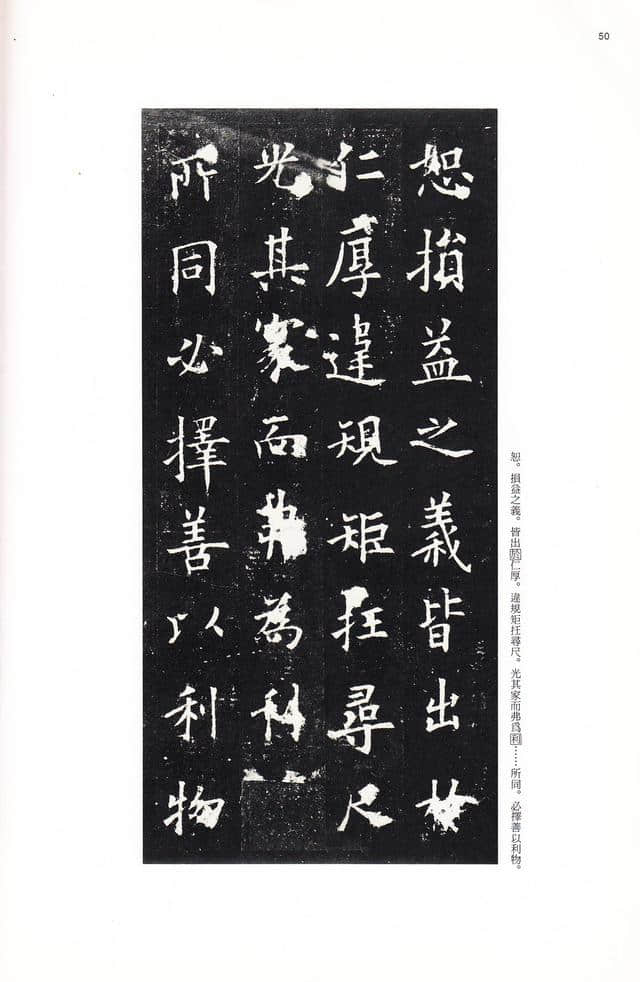 50
恕損益之義皆出於
仁厚違規矩抂尋尺
光其家而弗為利
所同必擇善以利物
恕。損益之義。皆出於仁厚。違規矩抂尋尺。光其家而弗爲利……所同。必擇善以利物。